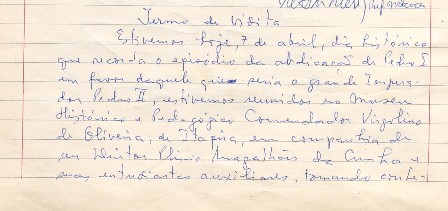 Termo de Visita
Estivemos hoje, 7 de abril, dia histórico
que recorda o episódio da abdicação de Pedro I
em favor daquele que seria o grande Impera-
dor Pedro II, estivemos reunidos no Museu
Histórico e Pedagógico Comendador Virgolino
de Oliveira, de Itapira, em companhia de
seu Diretor Plinio Magalhães da Cunha e
suas entusiastas auxiliares, tomando conhe-